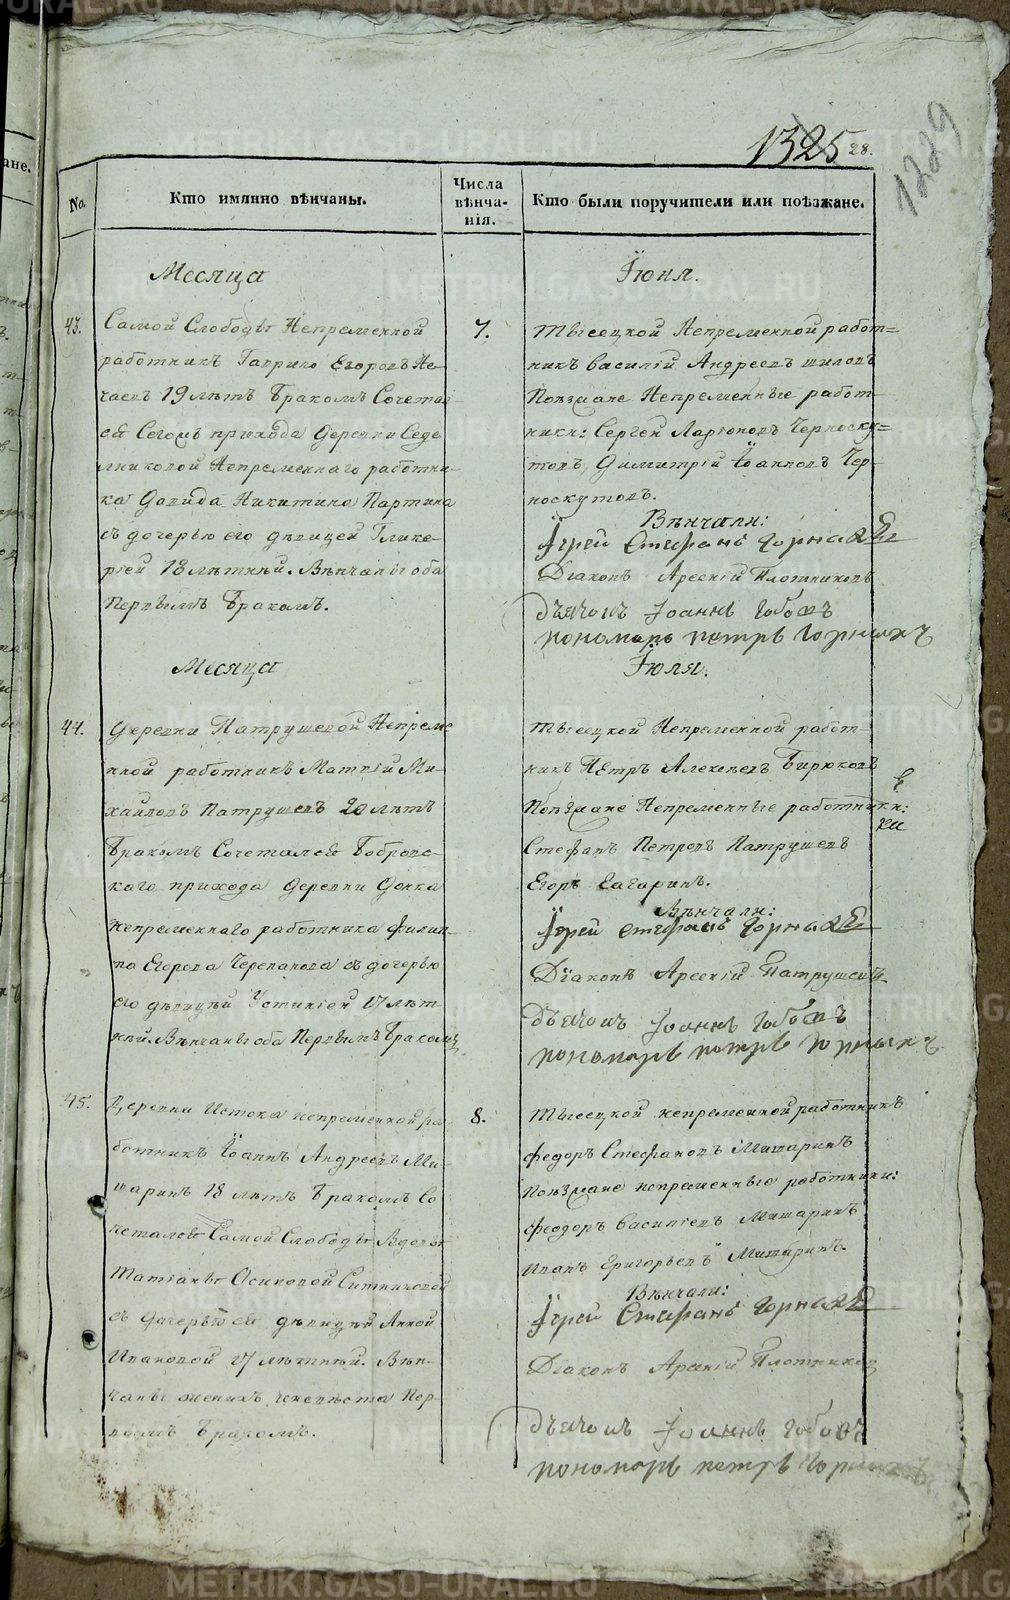 1325 28.
1229
No.
Кто имянно вѣнчаны.
Числа вѣнча-
нія.
Кто были поручители или поѣзжане.
Месяца
Іюня.
43.
Самой Слободы Непременной
работникъ Гаврило Егоровъ Не-
чаевъ 19 лѣтъ бракомъ Сочетал
ся Сегожъ прихода Деревни Седе
лниковой Непременнаго работни-
ка Давида Никитина Партина
съ дочерью его дѣвицей Глике-
ріей 18 лѣтнѣй. Вѣнчаніі оба
Первымъ бракомъ.
7.
Тысецкой Непременной работ=
никъ Василій Андреевъ Шиловъ
Поѣзжане Непременные работ-
ники: Сергей Ларіоновъ Черноску=
товъ, Димитрій Іоанновъ Чер-
носкутовъ.
Вѣнчали:
Іерей Стефанъ Горныхъ
Діаконъ Арсеній Плотниковъ
дьячокъ Іоаннъ
пономарь петръ Горныхъ
Месяца
Іюля.
44.
Деревни Патрушевой Непреме
нной работникъ Матвій Ми-
хайловъ Патрушевъ 20 лѣтъ
бракомъ Сочетался Бобровс-
каго прихода Деревни
непременнаго работника Филип-
па Егорова Черепанова съ дочерью
его дѣвицѣй Устиніей 17 лѣт-
ней. Вѣнчаны оба Первымъ бракомъ
Тысецкой Непременной работ-
никъ Пётръ Алексѣевъ Бирюковъ
Поѣзжане Непременные работники:
Стефанъ Петровъ Патрушевъ
Егоръ
Вѣнчали:
Іерей Стефанъ Горныхъ
Діаконъ Арсеній
дьячокъ Іоаннъ
пономарь петръ Горныхъ
45.
Деревни Истока непременной ра-
ботникъ Іоаннъ Андреевъ Ми-
шаринъ 18 лѣтъ бракомъ Со
четался Самой Слободы Вдовы
Татіаны Осиповой Ситниковой
съ дочерью ея дѣвицѣй Анной
Ивановой 17 лѣтнѣй. Вѣн-
чаны женихъ и невѣста Пер-
вымъ бракомъ.
8.
Тысецкой непременной работникъ
Федоръ Стефановъ Мишаринъ
Поѣзжане непременные работники:
Феодоръ Василіевъ Мишаринъ
Иванъ Григорьевъ Мишаринъ.
Вѣнчали:
Іерей Стефанъ Горныхъ
Діаконъ Арсеній Плотников
дьячокъ Іоаннъ
пономарь петръ Горныхъ
METRIKI.GASO-URAL.RU